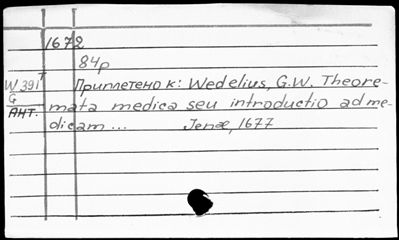 1672
84p
W391 Приплетено к: Wedelius, G.W. Theore-
G
АНТ. mata medica seu introductio ad me-
dicam ... Jenæ, 1677